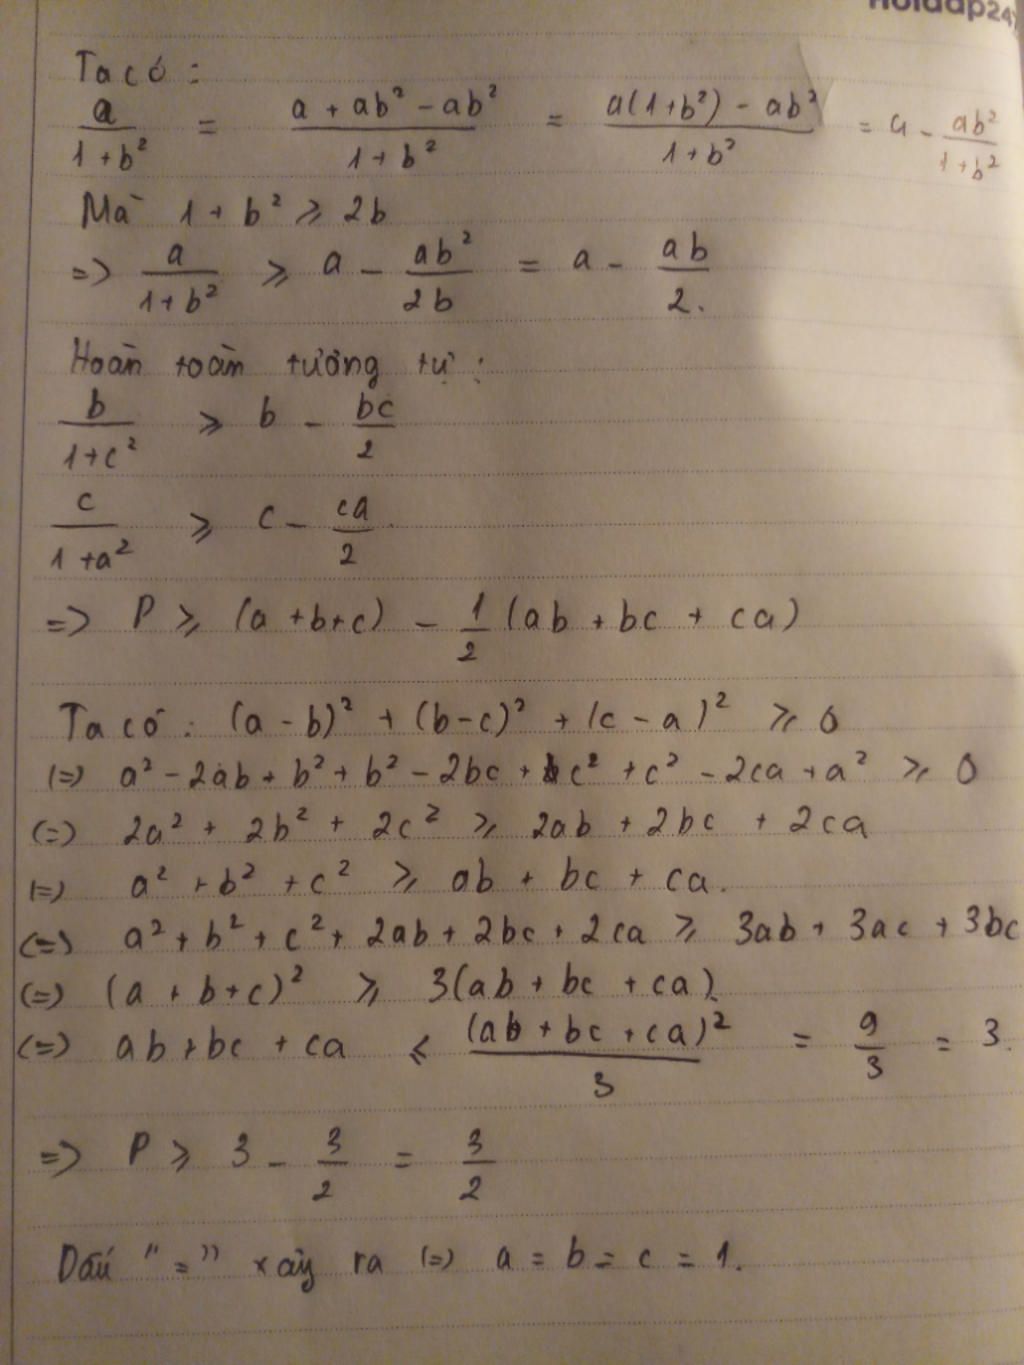 Hoidap247
Ta có :
a/(1+b²) = (a + ab² - ab²)/(1+b²) = (a(1+b²) - ab²)/(1+b²) = a - ab²/(1+b²)
Mà 1 + b² ⩾ 2b
=> a/(1+b²) ⩾ a - ab²/2b = a - ab/2.
Hoàn toàn tương tự :
b/(1+c²) ⩾ b - bc/2
c/(1+a²) ⩾ c - ca/2
=> P ⩾ (a+b+c) - 1/2 (ab + bc + ca)
Ta có : (a-b)² + (b-c)² + (c-a)² ⩾ 0
(=) a² - 2ab + b² + b² - 2bc + c² + c² - 2ca + a² ⩾ 0
(=) 2a² + 2b² + 2c² ⩾ 2ab + 2bc + 2ca
(=) a² + b² + c² ⩾ ab + bc + ca.
(=) a² + b² + c² + 2ab + 2bc + 2ca ⩾ 3ab + 3ac + 3bc
(=) (a + b + c)² ⩾ 3(ab + bc + ca)
(=) ab + bc + ca ⩽ (ab + bc + ca)²/3 = 9/3 = 3.
=> P ⩾ 3 - 3/2 = 3/2
Dấu "=" xảy ra (=) a = b = c = 1.